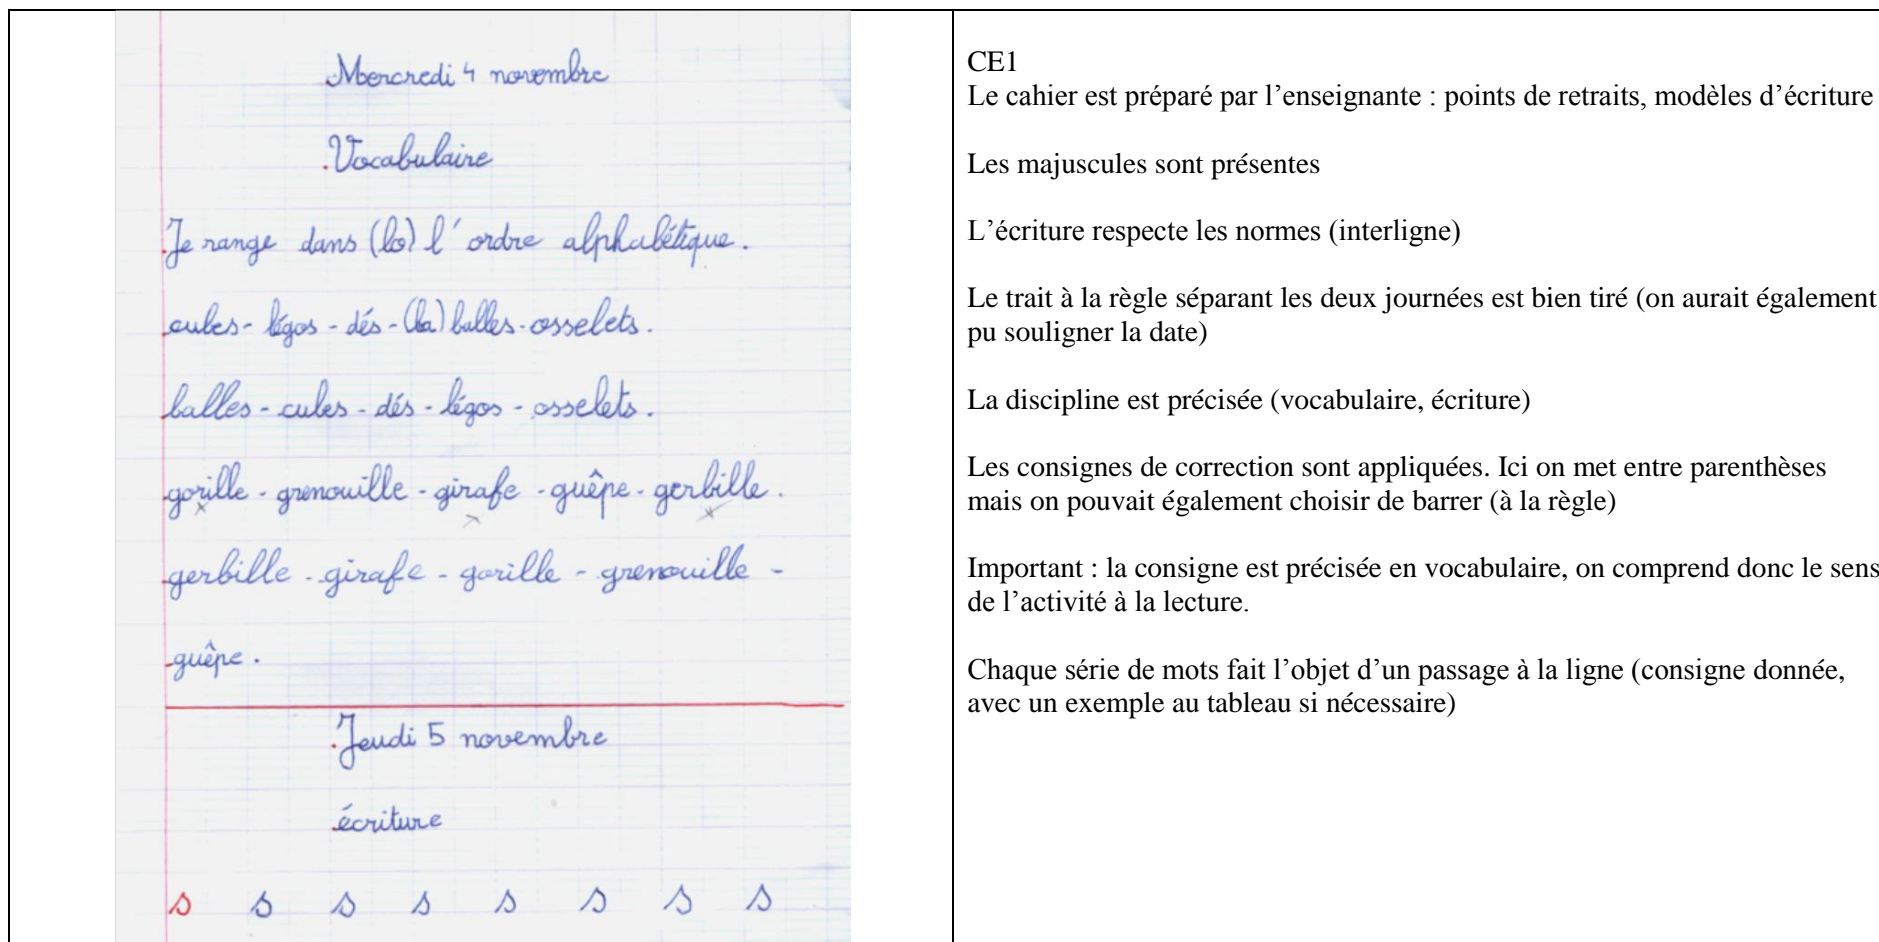 Mercredi 4 novembre
Vocabulaire
Je range dans (lo) l'ordre alphabétique.
cubes - légos - dés - (ba) balles - osselets.
balles - cubes - dés - légos - osselets.
gorille - grenouille - girafe - guêpe - gerbille.
gerbille - girafe - gorille - grenouille -
guêpe.
Jeudi 5 novembre
écriture
s s s s s s s s
CE1
Le cahier est préparé par l’enseignante : points de retraits, modèles d’écriture
Les majuscules sont présentes
L’écriture respecte les normes (interligne)
Le trait à la règle séparant les deux journées est bien tiré (on aurait également
pu souligner la date)
La discipline est précisée (vocabulaire, écriture)
Les consignes de correction sont appliquées. Ici on met entre parenthèses
mais on pouvait également choisir de barrer (à la règle)
Important : la consigne est précisée en vocabulaire, on comprend donc le sens
de l’activité à la lecture.
Chaque série de mots fait l’objet d’un passage à la ligne (consigne donnée,
avec un exemple au tableau si nécessaire)